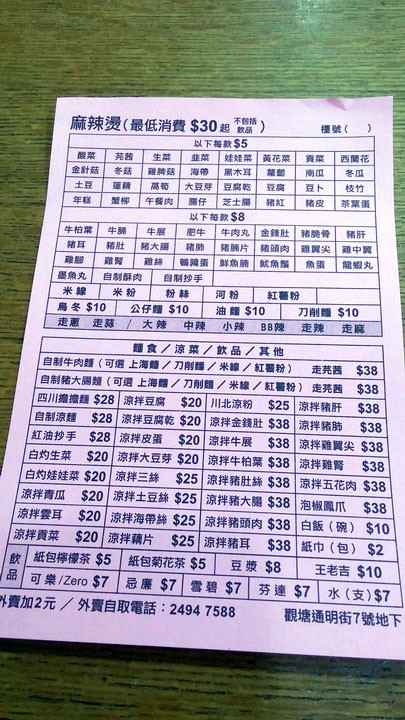 麻辣燙(最低消費 $30起 不包括飲品) 檯號( )
以下每款 $5
酸菜 芫茜 生菜 韭菜 娃娃菜 黃花菜 貢菜 西蘭花
金針菇 冬菇 雞脾菇 海帶 黑木耳 蘿蔔 南瓜 冬瓜
土豆 蓮藕 萵筍 大豆芽 豆腐乾 豆腐 豆卜 枝竹
年糕 蟹柳 午餐肉 腸仔 芝士腸 豬紅 豬皮 茶葉蛋
以下每款 $8
牛柏葉 牛腩 牛展 肥牛 牛肉丸 金錢肚 豬脆骨 豬肝
豬耳 豬肚 豬大腸 豬肺 豬腩片 豬頭肉 雞翼尖 雞中翼
雞腳 雞腎 雞絲 鵪鶉蛋 鮮魚腩 魷魚鬚 魚蛋 龍蝦丸
墨魚丸 自制酥肉 自制抄手
米線 米粉 粉絲 河粉 紅薯粉
烏冬 $10 公仔麵 $10 油麵 $10 刀削麵 $10
走蔥 走蒜 / 大辣 中辣 小辣 BB辣 走辣 走麻
麵食/涼菜/飲品/其他
自制牛肉麵(可選 上海麵/刀削麵/米線/紅薯粉) 走芫茜 $38
自制豬大腸麵(可選 上海麵/刀削麵/米線/紅薯粉) 走芫茜 $38
四川擔擔麵 $28 涼拌豆腐 $20 川北涼粉 $25 涼拌豬肝 $38
自制涼麵 $28 涼拌豆腐乾 $20 涼拌金錢肚 $38 涼拌豬肺 $38
紅油抄手 $28 涼拌皮蛋 $20 涼拌牛展 $38 涼拌雞翼尖 $38
白灼生菜 $20 涼拌大豆芽 $20 涼拌牛柏葉 $38 涼拌雞腎 $38
白灼娃娃菜 $20 涼拌三絲 $25 涼拌豬肚絲 $38 涼拌五花肉 $38
涼拌青瓜 $20 涼拌土豆絲 $25 涼拌豬大腸 $38 泡椒鳳爪 $38
涼拌雲耳 $20 涼拌海帶絲 $25 涼拌豬頭肉 $38 白飯(碗) $10
涼拌貢菜 $20 涼拌藕片 $25 涼拌豬耳 $38 紙巾(包) $2
飲品 紙包檸檬茶 $5 紙包菊花茶 $5 豆漿 $8 王老吉 $10
可樂/Zero $7 忌廉 $7 雪碧 $7 芬達 $7 水(支) $7
外賣加2元/外賣自取電話:2494 7588 觀塘通明街7號地下